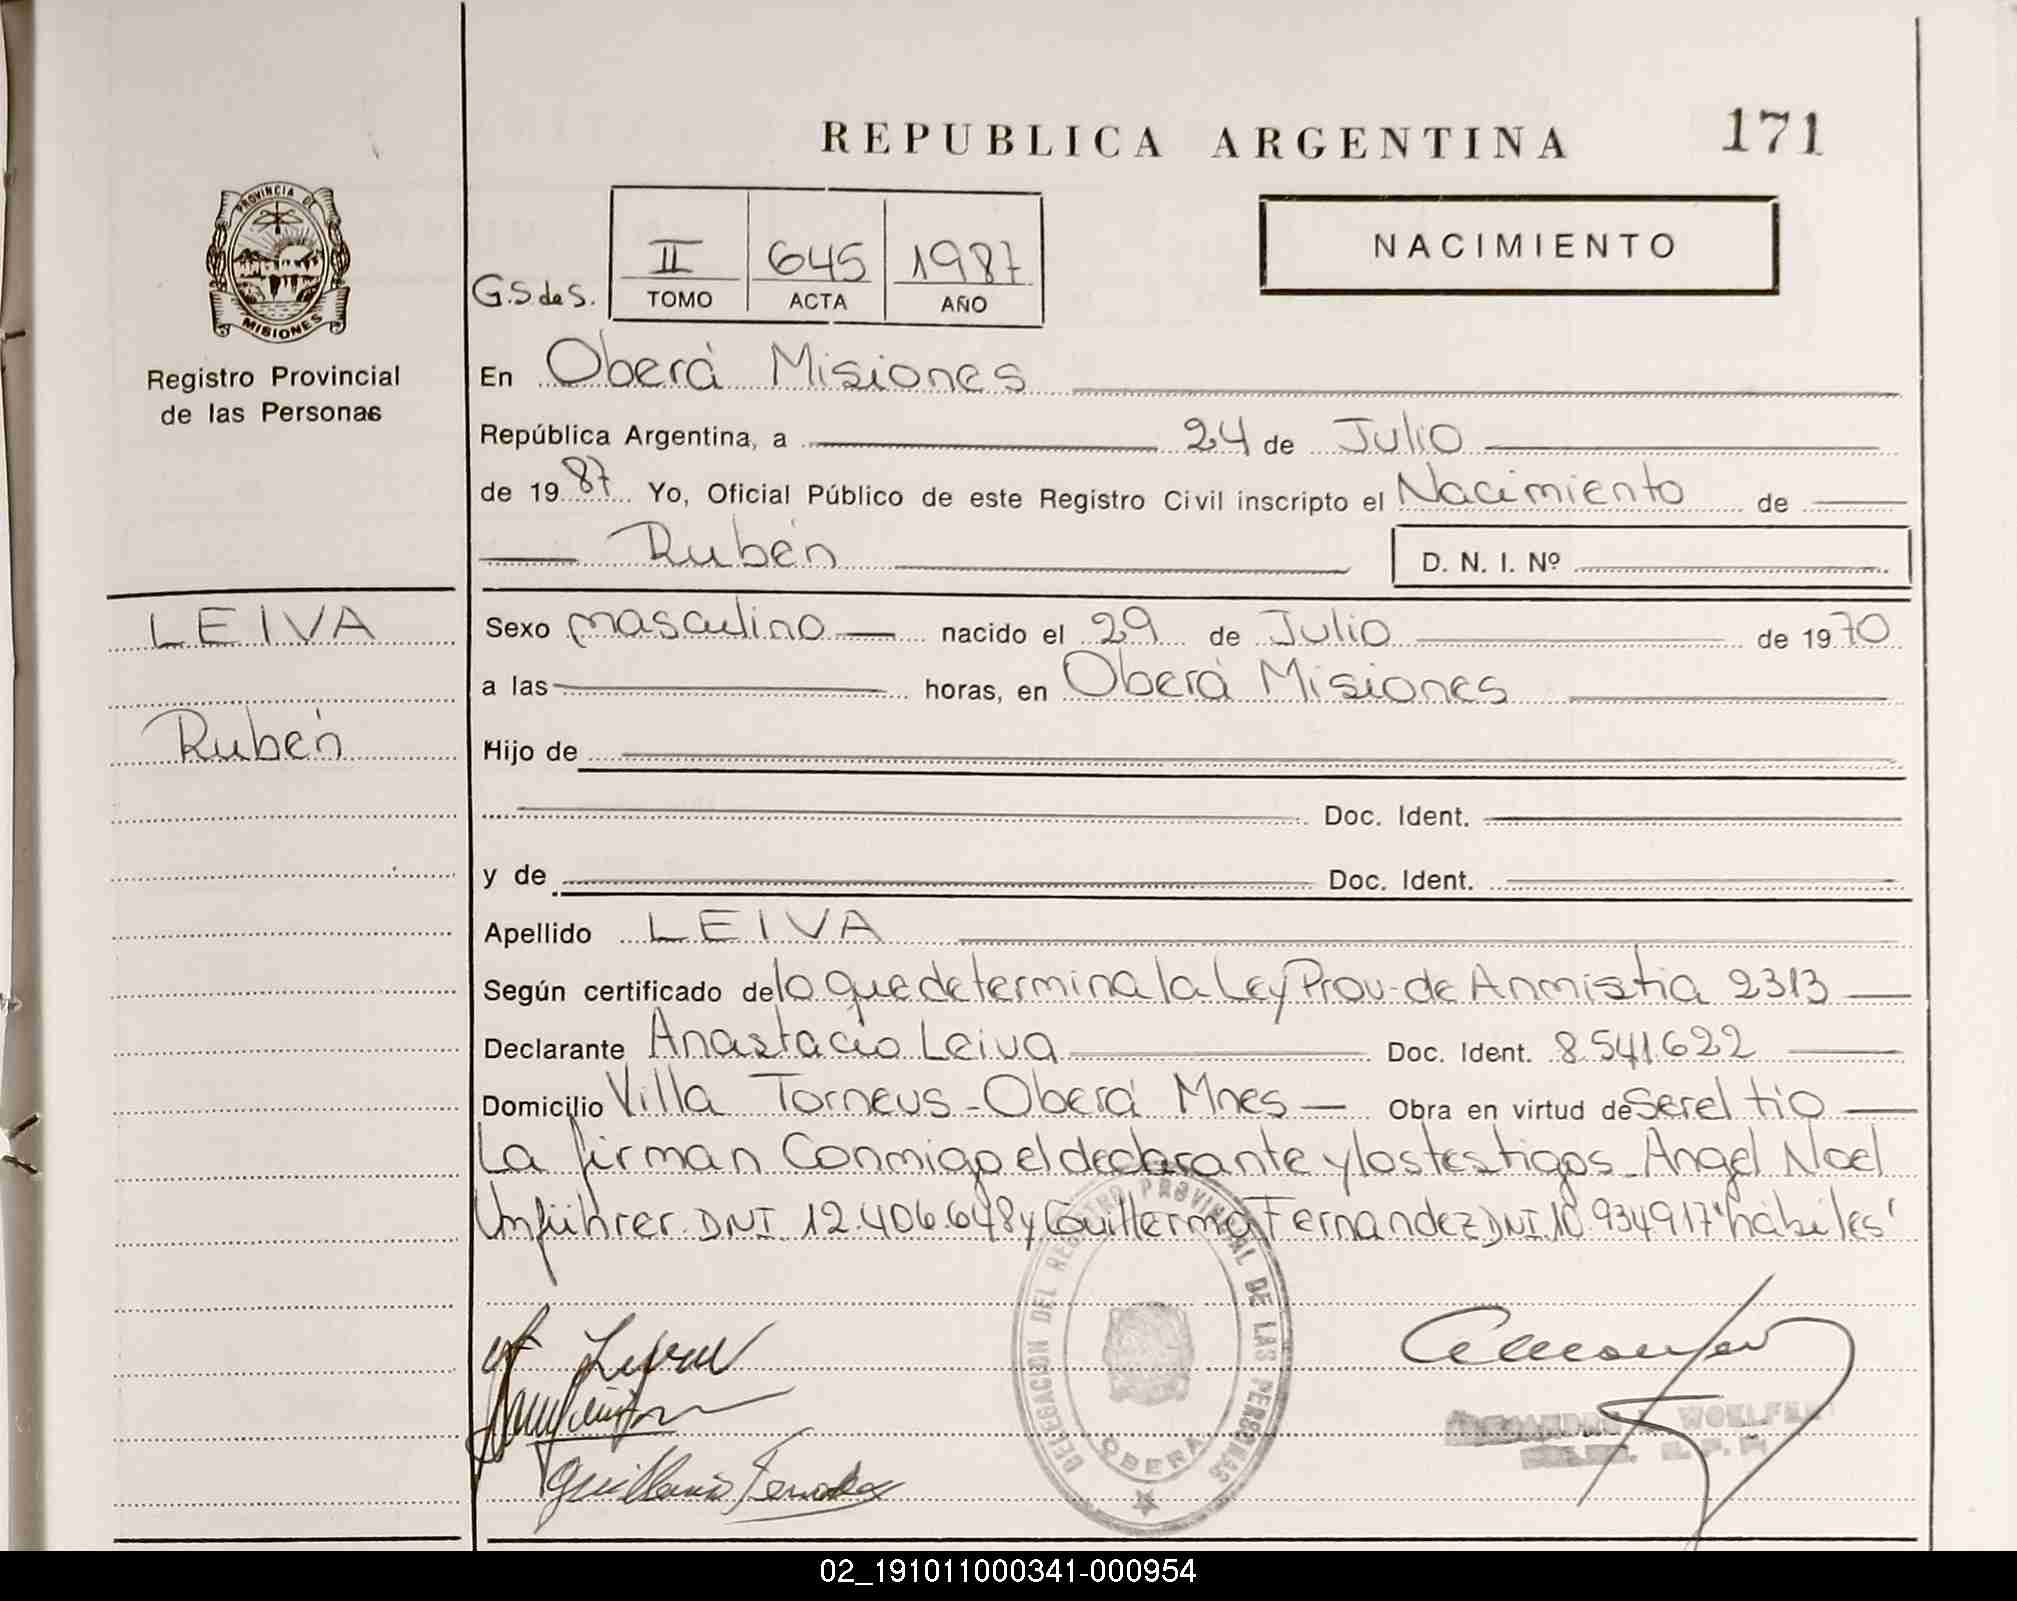 REPUBLICA ARGENTINA 171
PROVINCIA DE
MISIONES
Registro Provincial
de las Personas
NACIMIENTO
G.S de S.
II 645 1987
TOMO ACTA AÑO
En Oberá Misiones
República Argentina, a 24 de Julio
de 1987 Yo, Oficial Público de este Registro Civil inscripto el Nacimiento de
Rubén D. N. I. Nº
LEIVA
Rubén
Sexo masculino nacido el 29 de Julio de 1970
a las horas, en Oberá Misiones
Hijo de
Doc. Ident.
y de Doc. Ident.
Apellido LEIVA
Según certificado de lo que determina la Ley Prov. de Anmistia 2313
Declarante Anastacio Leiva Doc. Ident. 8.541.622
Domicilio Villa Torneus - Oberá Mnes - Obra en virtud de ser el tio
La firman Conmigo el declarante y los testigos Angel Noel
Unführer DNI 12.406.648 y Guillermo Fernandez DNI 10.934917 "hábiles"
DELEGACION DEL REGISTRO PROVINCIAL DE LAS PERSONAS
OBERA
Guillermo Fernandez
02_191011000341-000954